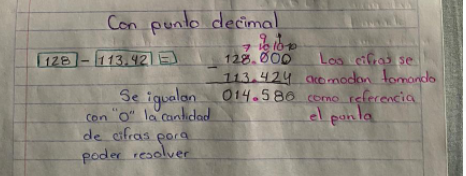 Con punto decimal
128 - 113.42 =
9
7 10 10 10
128.000
- 113.424
014.586
Las cifras se
acomodan tomando
como referencia
el punto
Se igualan
con "0" la cantidad
de cifras para
poder resolver